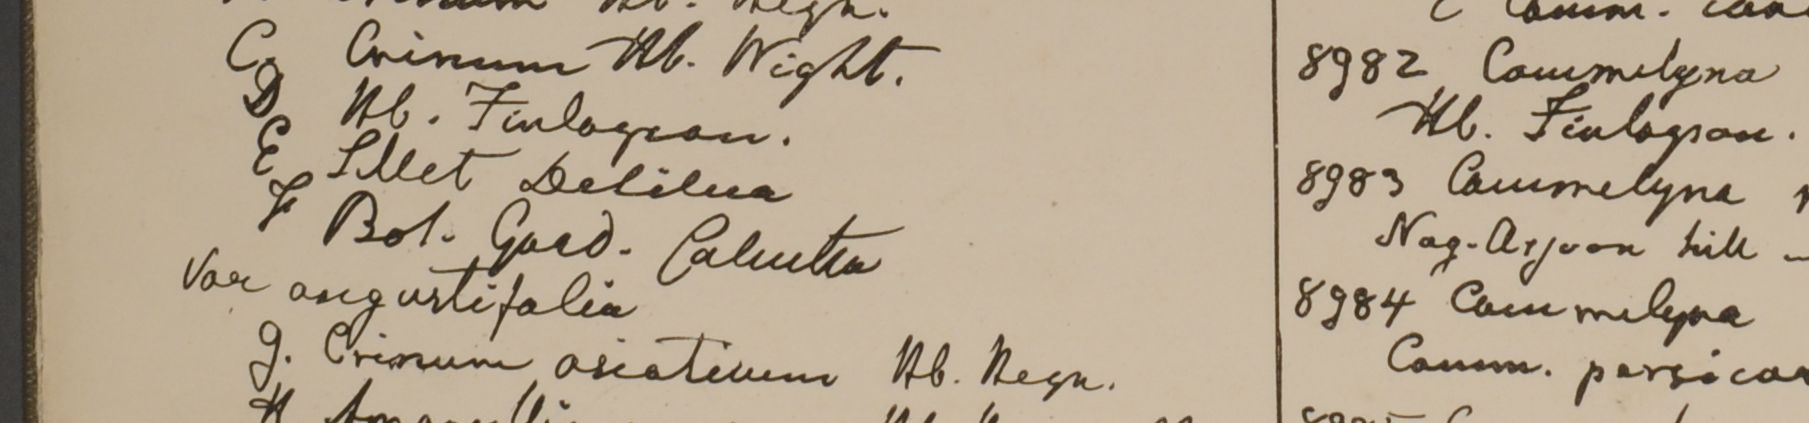 Crinum Hb. Heyn.
C. Crinum Hb. Wight.
D Hb. Finlayson.
E Sillet Desilva
F Bot. Gard. Calcutta
Var angustifolia
G. Crinum asiaticum Hb. Heyn.
H
Comm.
8982 Commelyna
Hb. Finlayson.
8983 Commelyna
Nag-Arjoon hill
8984 Commelyna
Comm. persicar